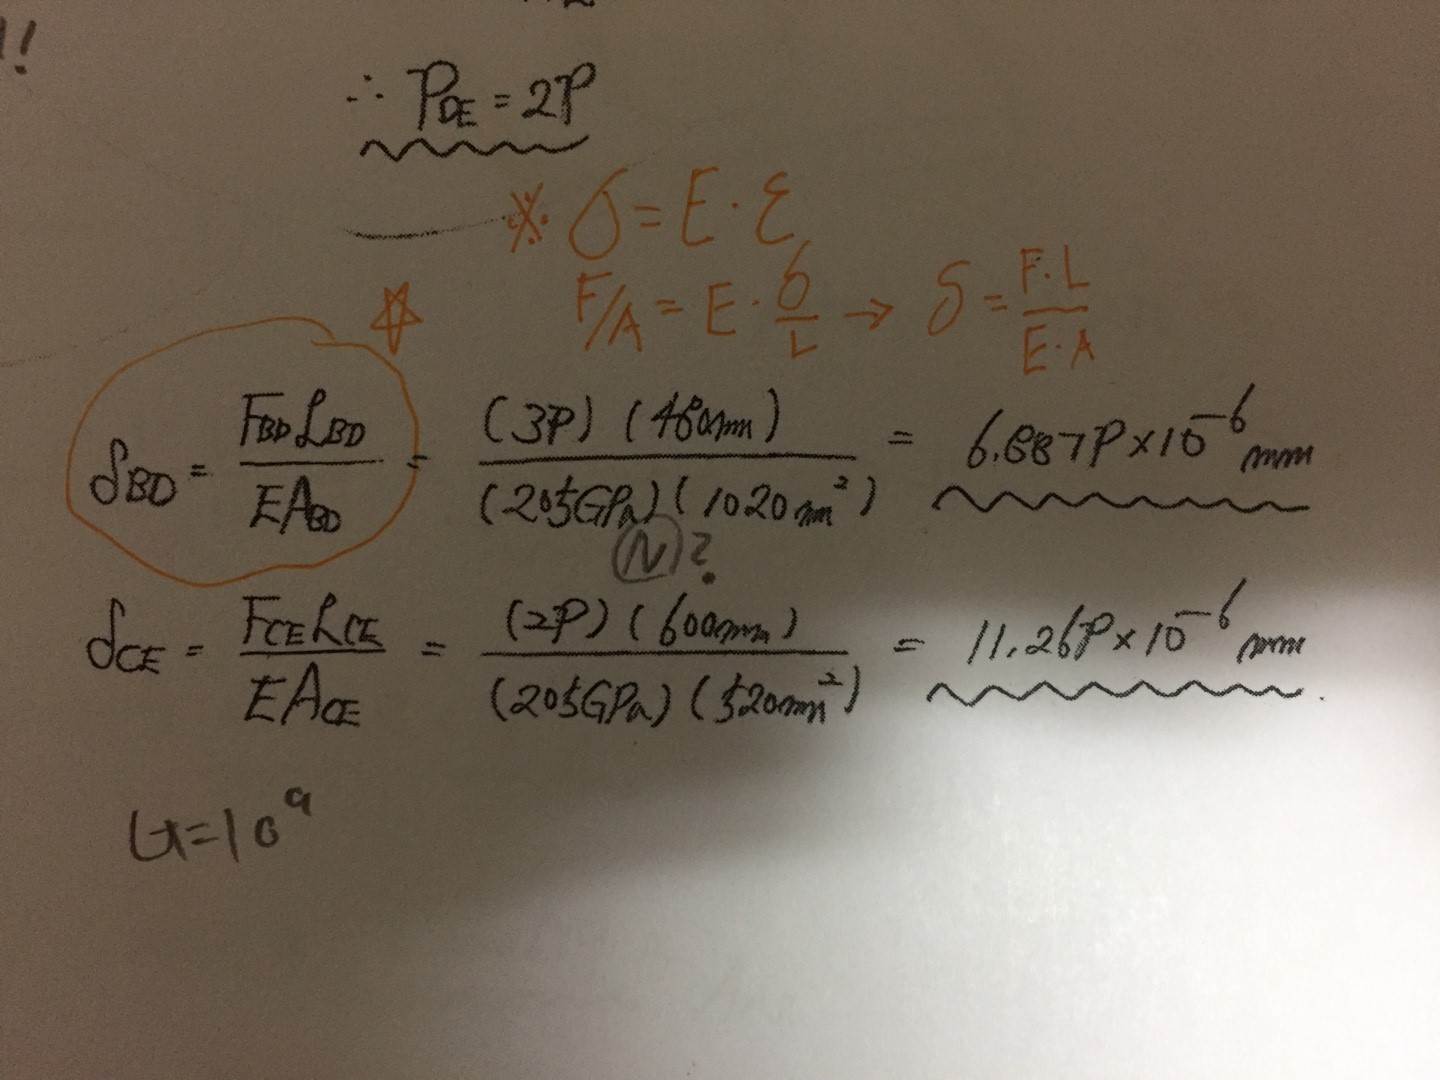 !
∴ P_DE = 2P
※ σ = E · ε
F/A = E · δ/L → δ = F·L / E·A
☆
δ_BD = F_BD L_BD / EA_BD = (3P) (480mm) / (205GPa) (1020mm²) = 6.887P×10⁻⁶ mm
(N)?
δ_CE = F_CE L_CE / EA_CE = (2P) (600mm) / (205GPa) (520mm²) = 11.26P×10⁻⁶ mm.
G=10⁹